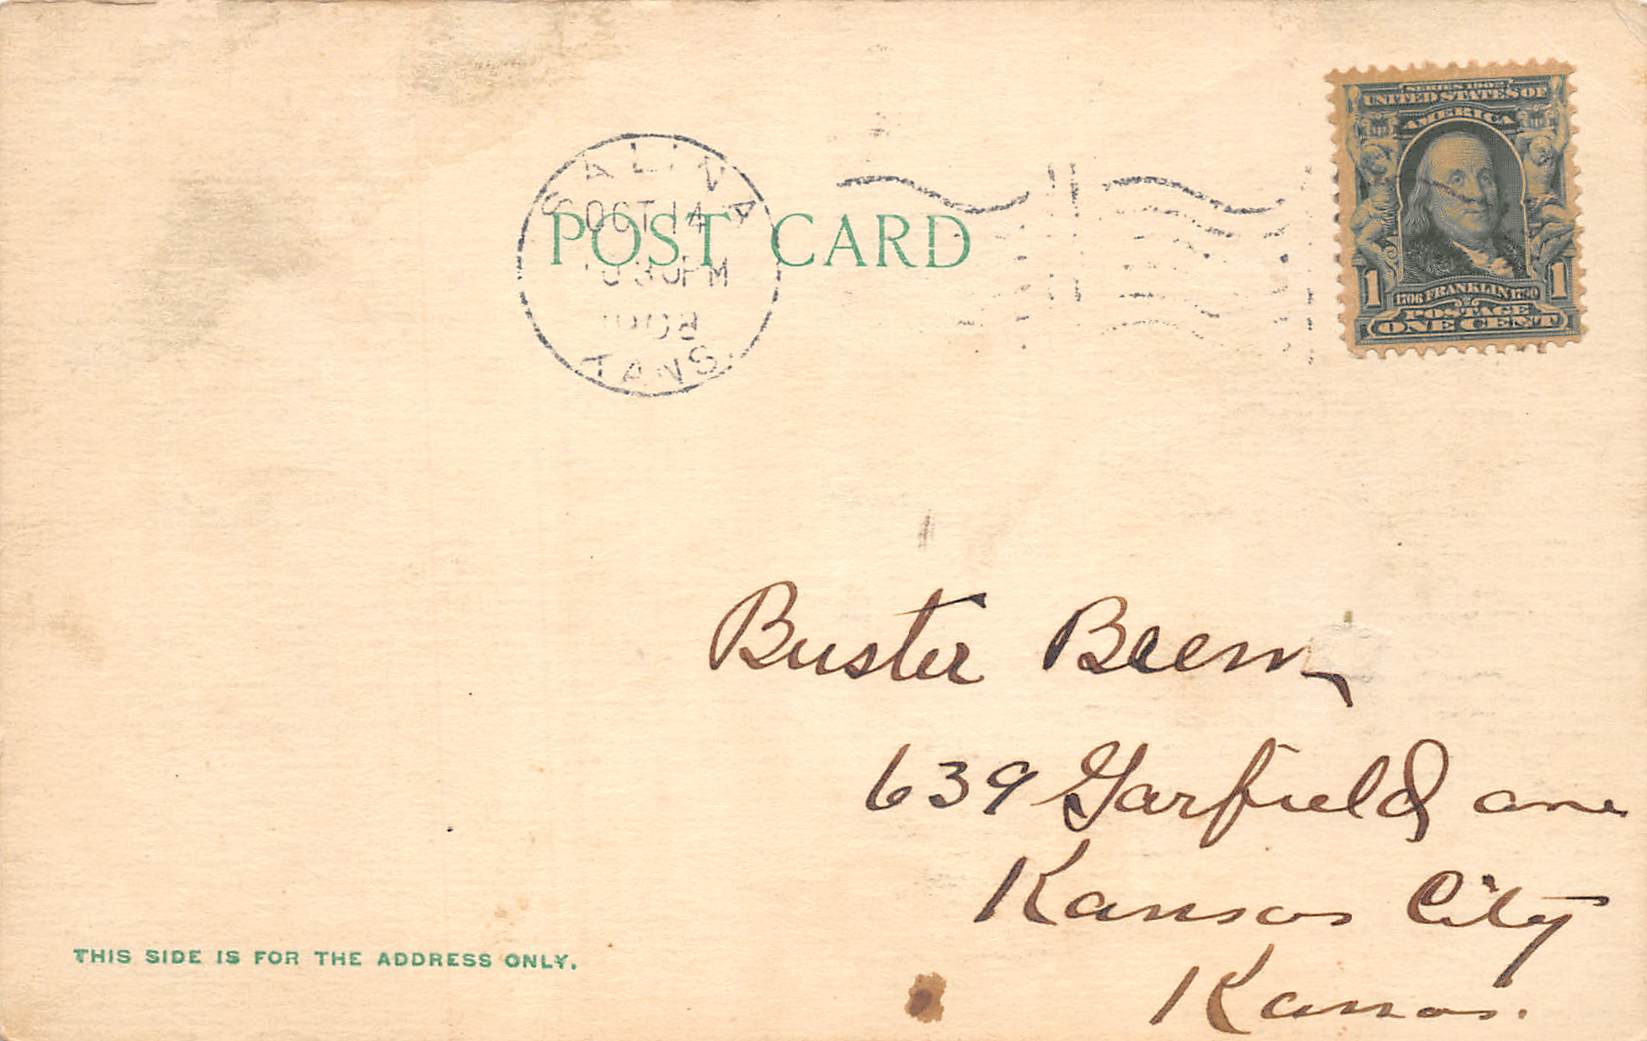 SERIES 1902
UNITED STATES OF
AMERICA
1 1706 FRANKLIN 1790 1
POSTAGE
ONE CENT
SALINA
OCT 14
30 PM
1908
KANS.
POST CARD
Buster Beem
639 Garfield ave
Kansas City
Kansas.
THIS SIDE IS FOR THE ADDRESS ONLY.